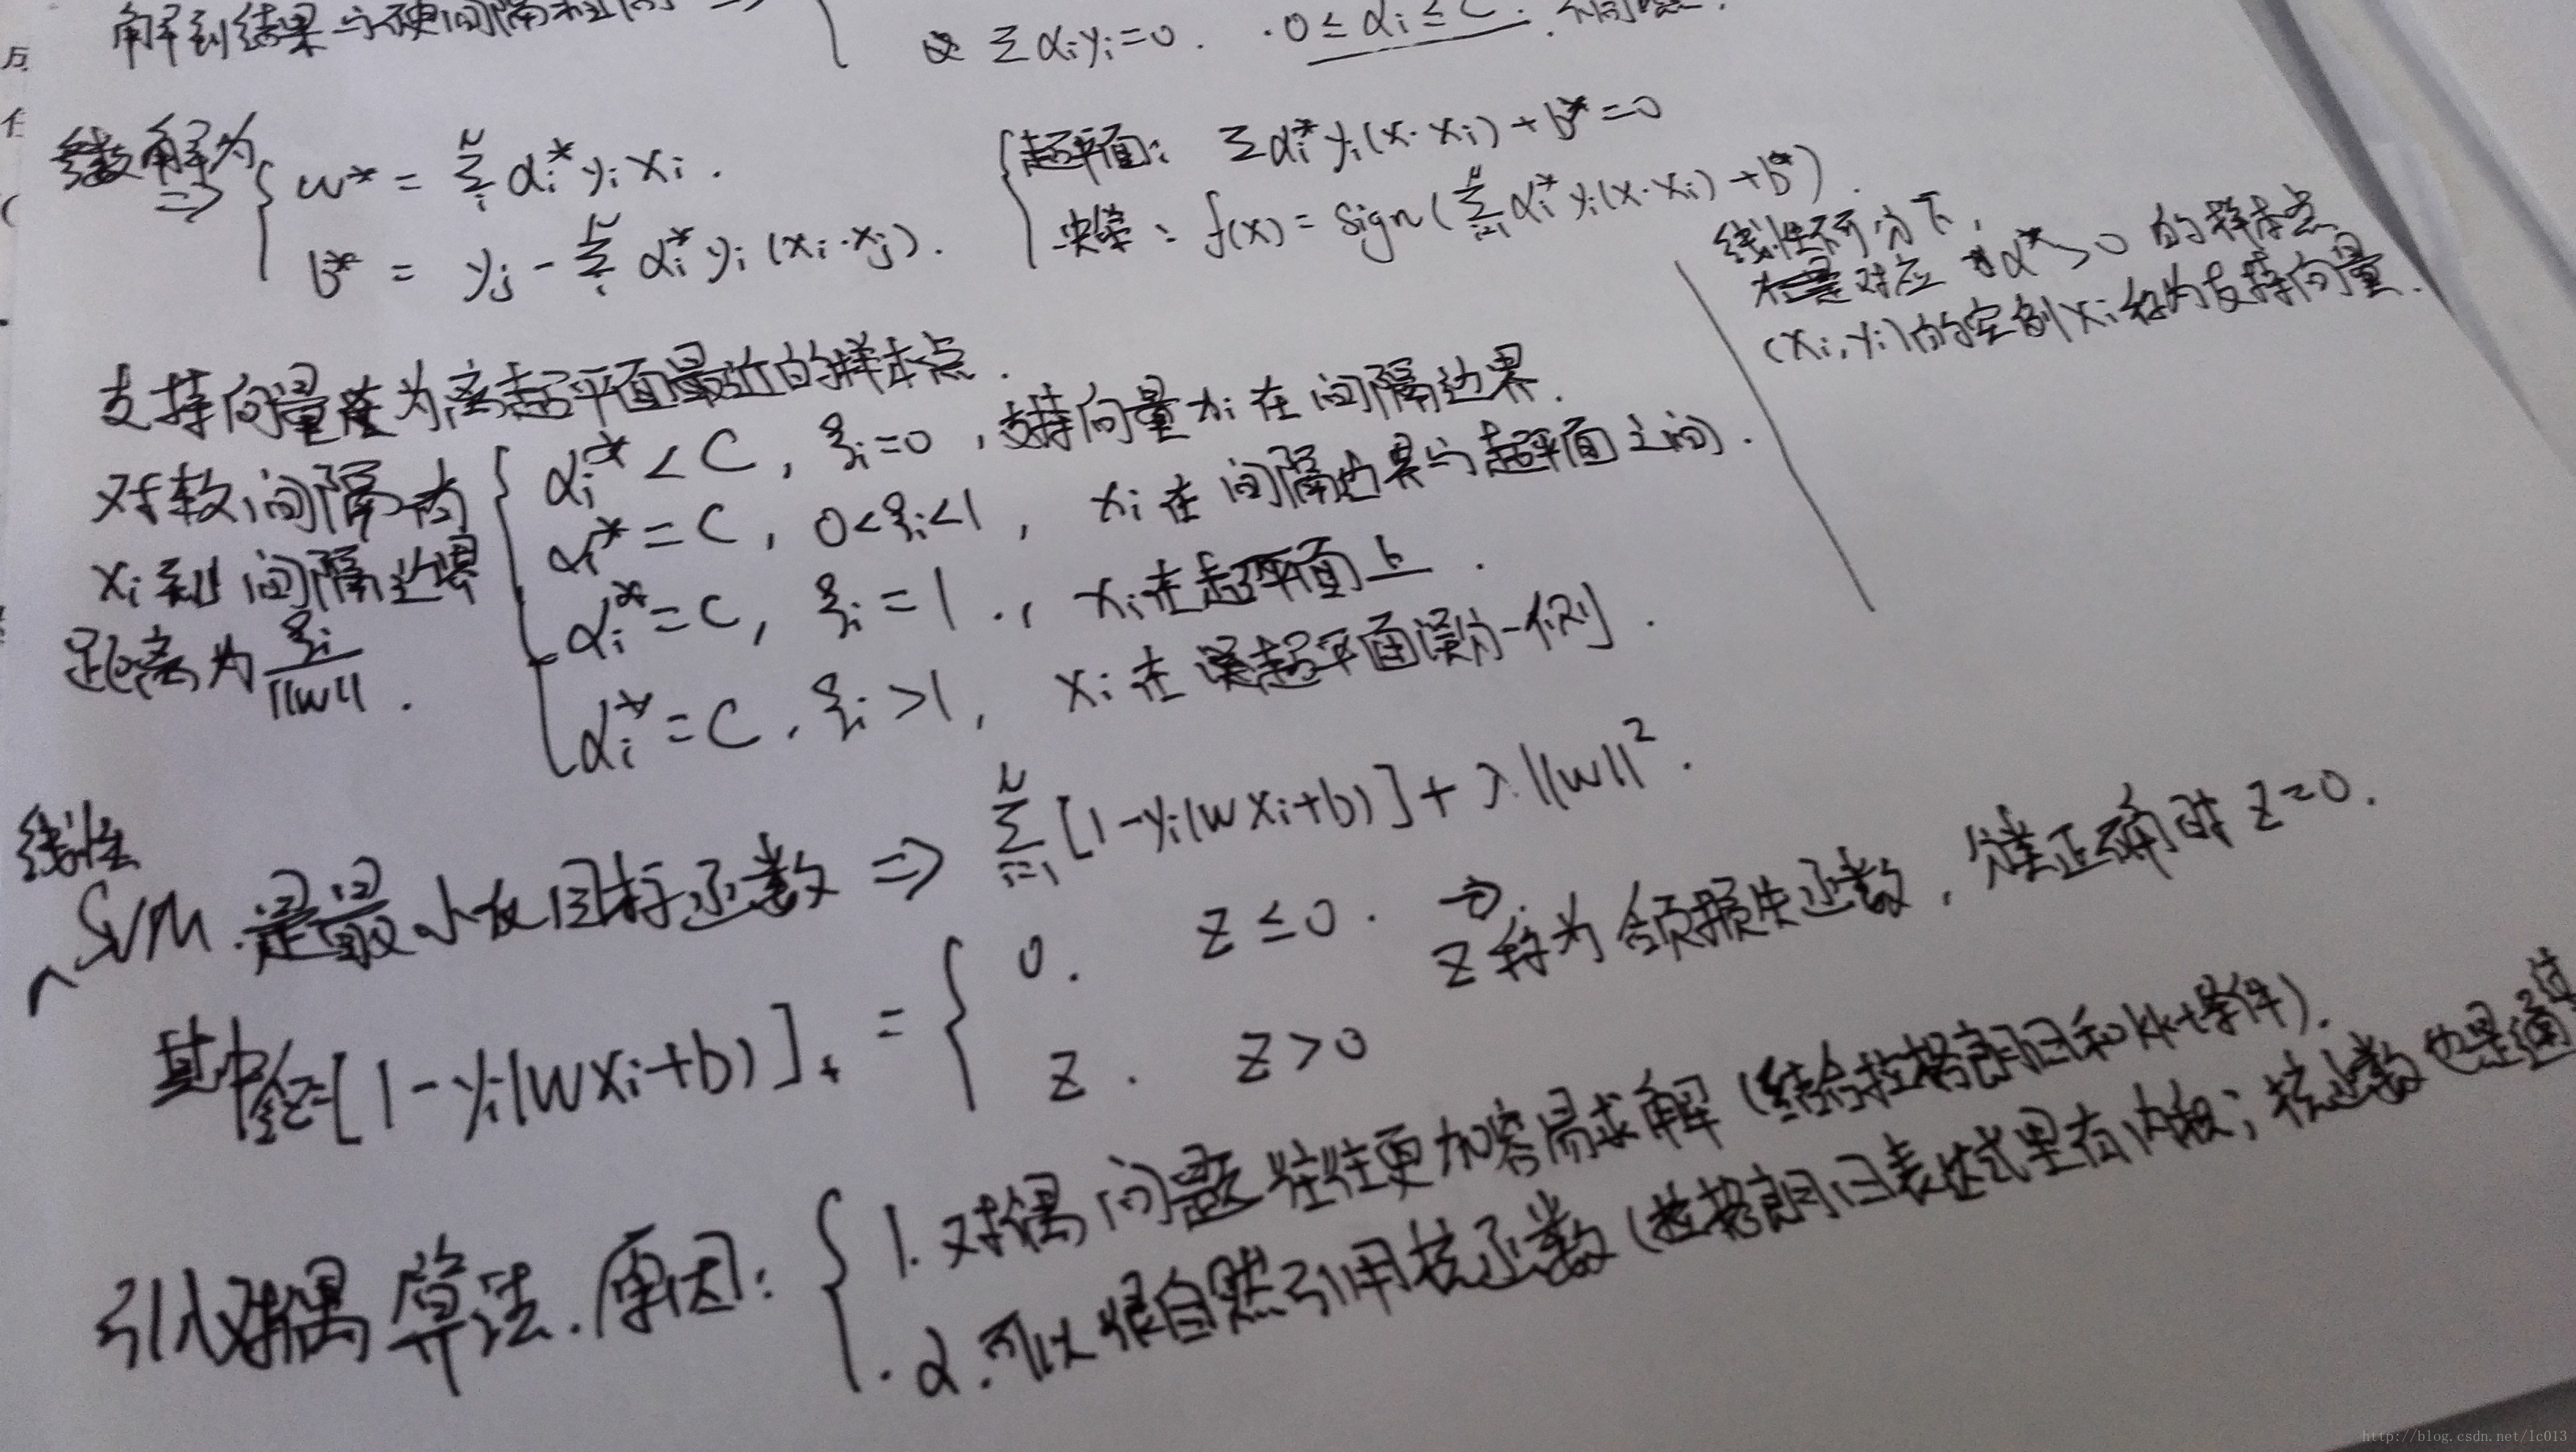 解到结果与硬间隔
∑αiyi=0. 0≤αi≤C.
解为
⇒ { w* = ∑_i^N αi* yi xi.
b* = yj - ∑_i^N αi* yi (xi·xj).
{ 超平面: ∑αi* yi(x·xi) + b* = 0
决策: f(x) = sign(∑_{i=1}^N αi* yi(x·xi) + b*).
线性不可分下,
对应 α*>0 的样本点
(xi,yi)的实例xi称为支持向量.
支持向量 为离超平面最近的样本点.
对软间隔有
xi到间隔边界
距离为 ξi/||w||.
{ αi* < C, ξi=0, 支持向量xi在间隔边界.
αi* = C, 0<ξi<1, xi在间隔边界与超平面之间.
αi* = C, ξi=1., xi在超平面上.
αi* = C, ξi>1, xi在超平面误分一侧.
线性
SVM.是最小化目标函数 ⇒ ∑_{i=1}^N [1-yi(wxi+b)] + λ||w||².
其中令z=[1-yi(wxi+b)]₊ = { 0. z≤0. ⇒.
z. z>0
z称为合页损失函数, 分类正确时z=0.
引入对偶算法.原因:
{ 1. 对偶问题往往更加容易求解(结合拉格朗日和kkt条件).
2. 可以很自然引用核函数(拉格朗日表达式里有内积; 核函数也是通
http://blog.csdn.net/lc013